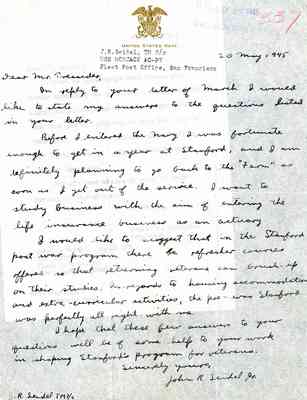 UNITED STATES NAVY
J.R. Seidel, TM 3/c
Fleet Post Office, San Francisco
20 May, 1945
Dear Mr. Tresidder,
In reply to your letter of March I would
like to state my answers to the questions listed
in your letter.
Before I entered the navy I was fortunate
enough to get in a year at Stanford, and I am
definitely planning to go back to the "Farm" as
soon as I get out of the service. I want to
study business with the aim of entering the
life insurance business as an actuary.
I would like to suggest that in the Stanford
post war program there be refresher courses
offered so that returning veterans can brush-up
on their studies. In regards to housing accommodations
and extra-curricular activities, the pre-war Stanford
was perfectly all right with me.
I hope that these few answers to your
questions will be of some help to your work
in shaping Stanford's program for veterans.
Sincerely yours,
John R Seidel Jr.
J.R. Seidel TM3/c